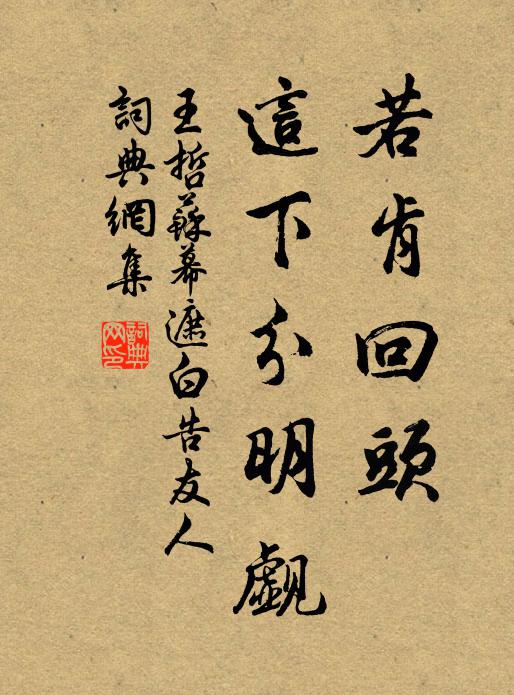 若肯回頭
這下分明覷
王哲蘇幕遮白告友人
詞典網集
詞典
网印